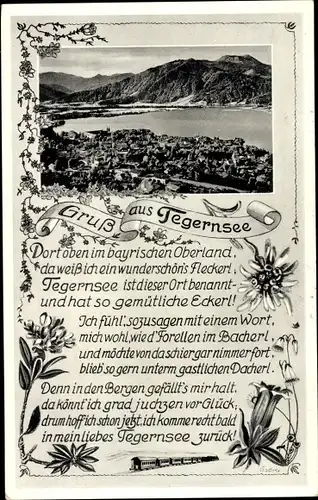 Gruß aus Tegernsee
Dort oben im bayrischen Oberland,
da weiß ich ein wunderschön's Fleckerl,
Tegernsee ist dieser Ort benannt-
und hat so gemütliche Eckerl!
Ich fühl', sozusagen mit einem Wort,
mich wohl, wie d' Forellen im Bacherl,
und möchte von da schier gar nimmer fort,
blieb so gern unterm gastlichen Dacherl.
Denn in den Bergen gefällt's mir halt,
da könnt' ich grad juchzen vor Glück;
drum hoff' ich schon jetzt, ich komme recht bald
in mein liebes Tegernsee zurück!